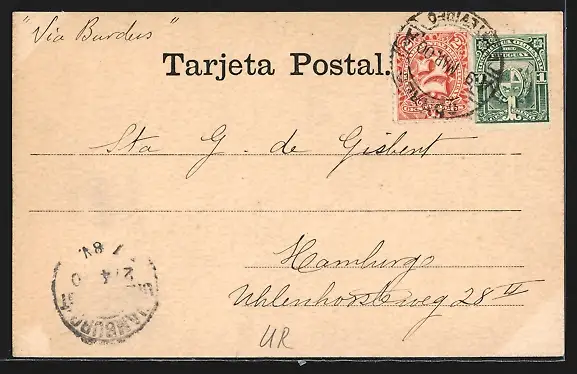 "Via Burdeos"
Tarjeta Postal.
Sta G. de Gisbert
Hamburgo
Uhlenhorsterweg 28 II
UR
HAMBURG
1